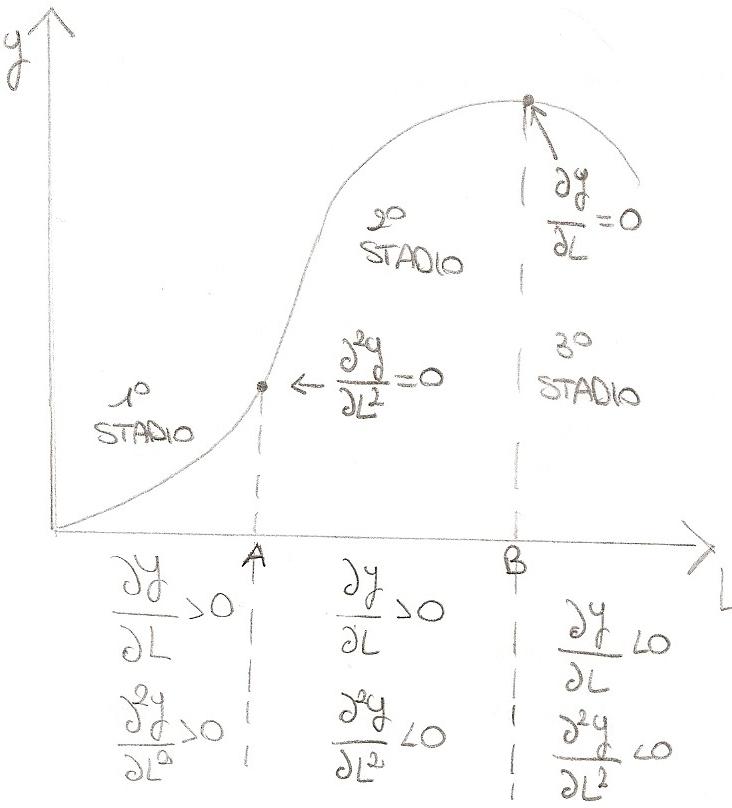 y
∂y/∂L = 0
2° STADIO
∂²y/∂L² = 0
3° STADIO
1° STADIO
A
B
L
∂y/∂L > 0
∂²y/∂L² > 0
∂y/∂L > 0
∂²y/∂L² < 0
∂y/∂L < 0
∂²y/∂L² < 0